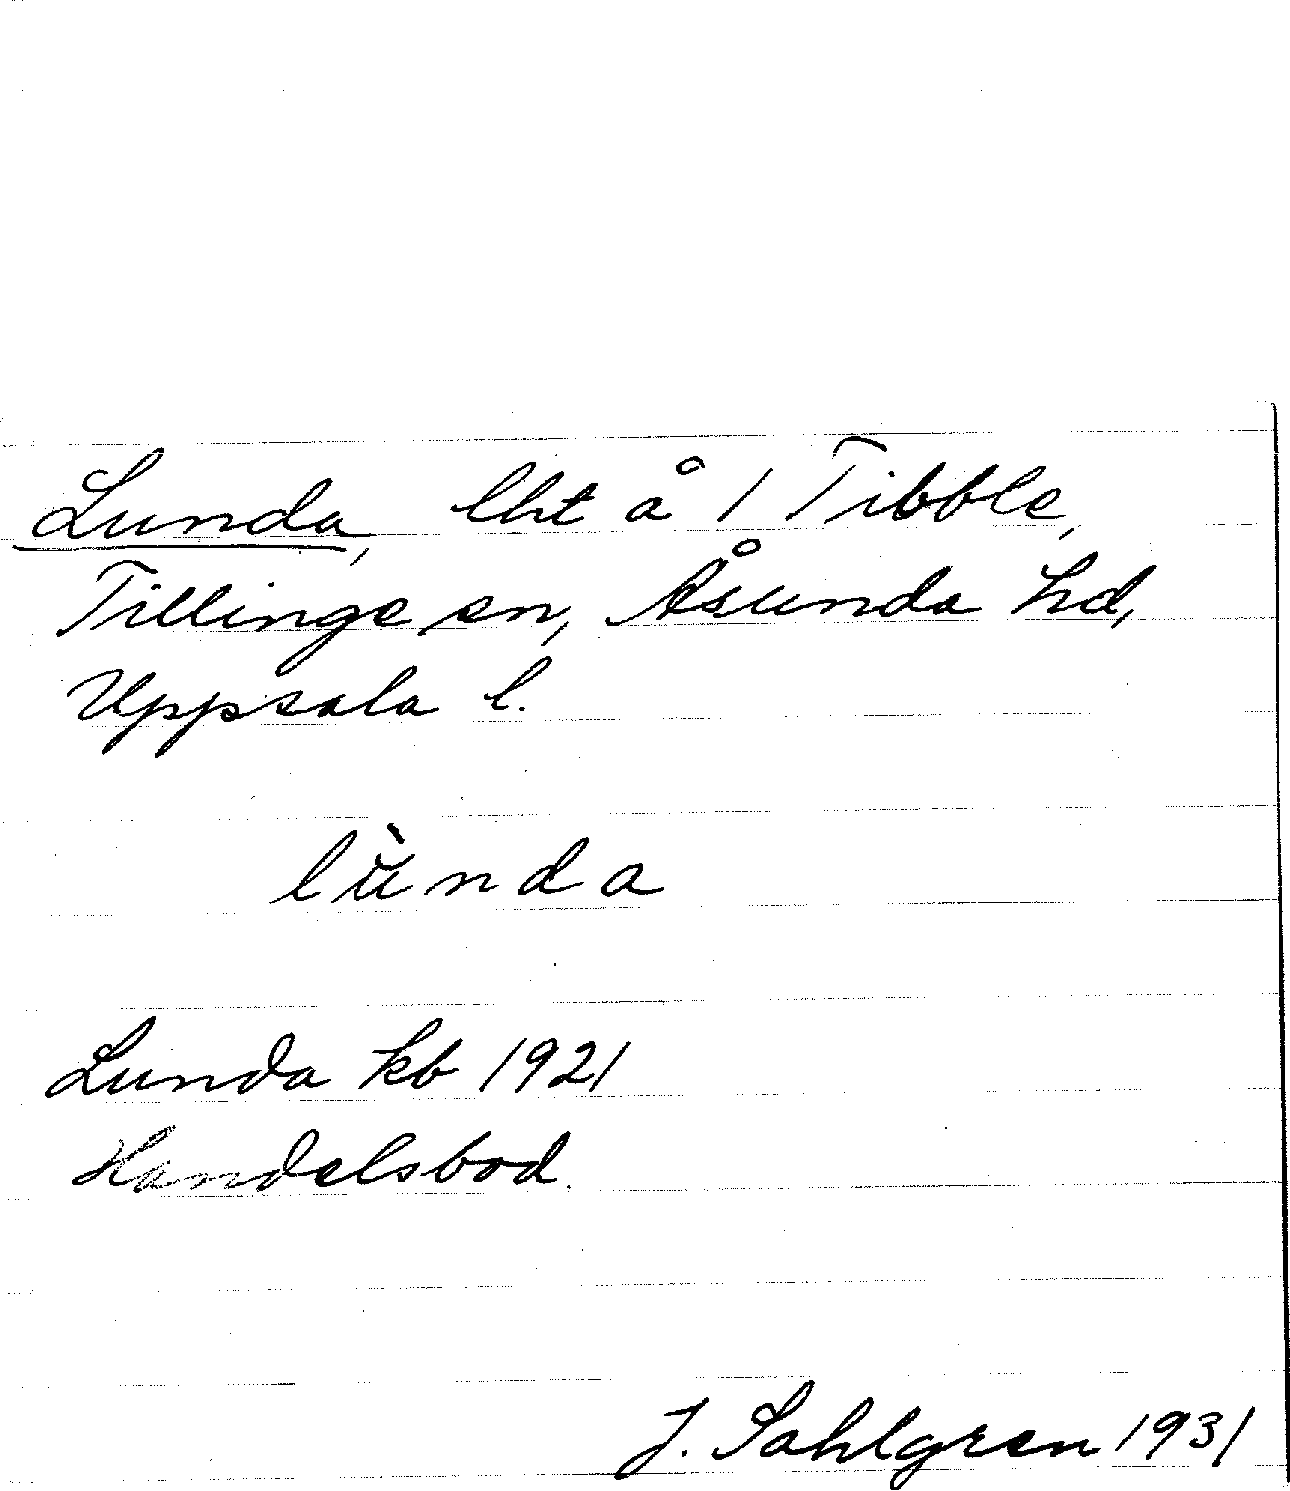 Lunda, lht å 1 Tibble,
Tillinge sn, Åsunda hd,
Uppsala l.
lùnda
Lunda kb 1921
Handelsbod.
J. Sahlgren 1931